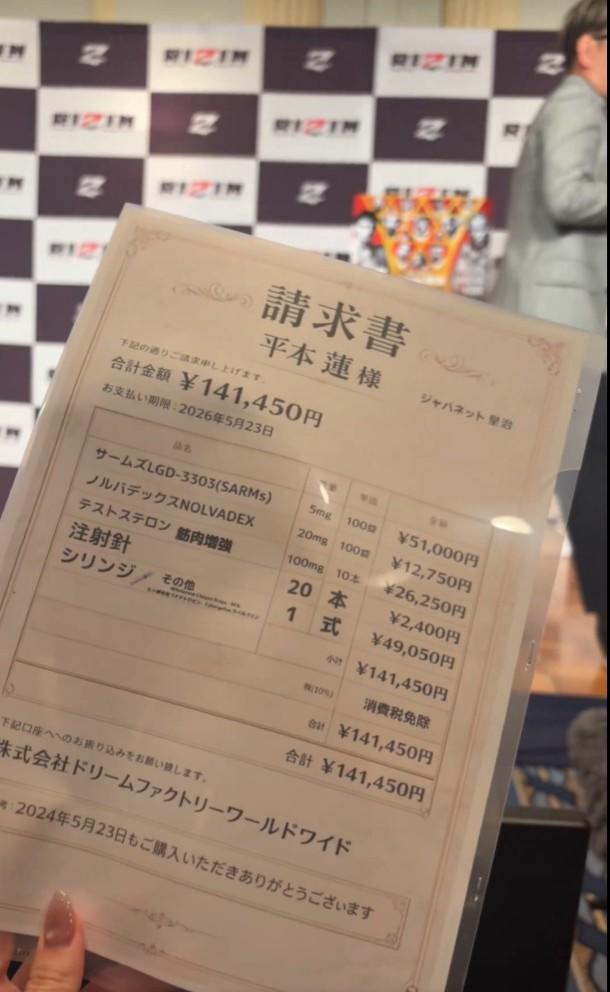 RIZIN
請求書
平本 蓮 様
下記の通りご請求申し上げます。
合計金額 ¥141,450円
お支払い期限:2026年5月23日
ジャパネット 皇治
品名 単価 金額
サームズLGD-3303(SARMs) 5mg 100錠 ¥51,000円
ノルバデックスNOLVADEX 20mg 100錠 ¥12,750円
テストステロン 筋肉増強 100mg 10本 ¥26,250円
注射針 20 本 ¥2,400円
シリンジ その他 1 式 ¥49,050円
小計 ¥141,450円
税(10%) 消費税免除
合計 ¥141,450円
合計 ¥141,450円
下記口座へのお振り込みをお願い致します。
株式会社ドリームファクトリーワールドワイド
考:2024年5月23日もご購入いただきありがとうございます